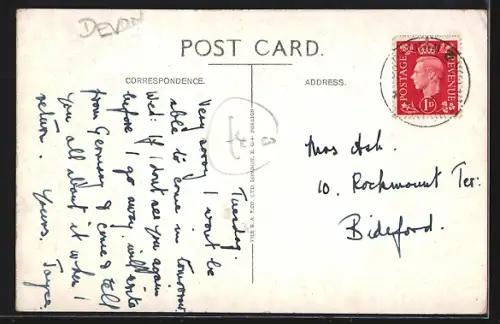 DEVON
POST CARD.
CORRESPONDENCE.
ADDRESS.
POSTAGE
REVENUE
1D
Tuesday.
Very sorry I wont be
able to come in tomorrow
Wed. If I dont see you again
before I go away, will write
from Germany & come & tell
you all about it when I
return. Yours. Joyce.
Mrs Ash.
10. Rockmount Ter:
Bideford.